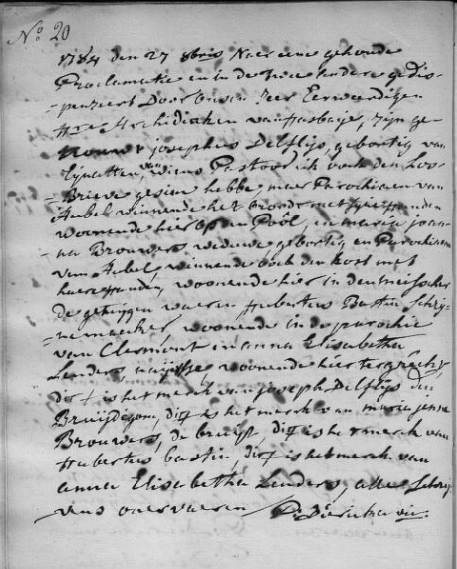 No 20
1784 den 27 8bris Naer eene gehoude
Proclamatie en in de twee andere gedis-
-penseert door onsen zeer Eerwerdigen
Heere Archidiaken van Hasbaje, zijn ge
trouwt josephus Delflijs, gebortig van
van wiens Pastoor ik oock den Los-
-Brieve gesien hebbe maer Parochiaen van
Aubel winnende het broodt met
woonende hier op den Poôl, en maria joan-
na Brouwers weduwe gebortig en Parochiaen
van Aubel winnende oock den kost met
haere handen, woonende hier in
de getuijgen waeren Hubertus Bastin Schrij-
-nemaecker woonende in de parochie
van Clermont en anna Elisabetha
Lenders woonende hier ter
dit + is het merck van joseph Delflijs den
Bruijdegom, dit + is het merck van marie jenne
Brouwers, de bruijt dit + is het merck van
Hubertus bastin dit + is het merck van
anna Elisabetha Lenders, alle Schrij-
vens onervaeren